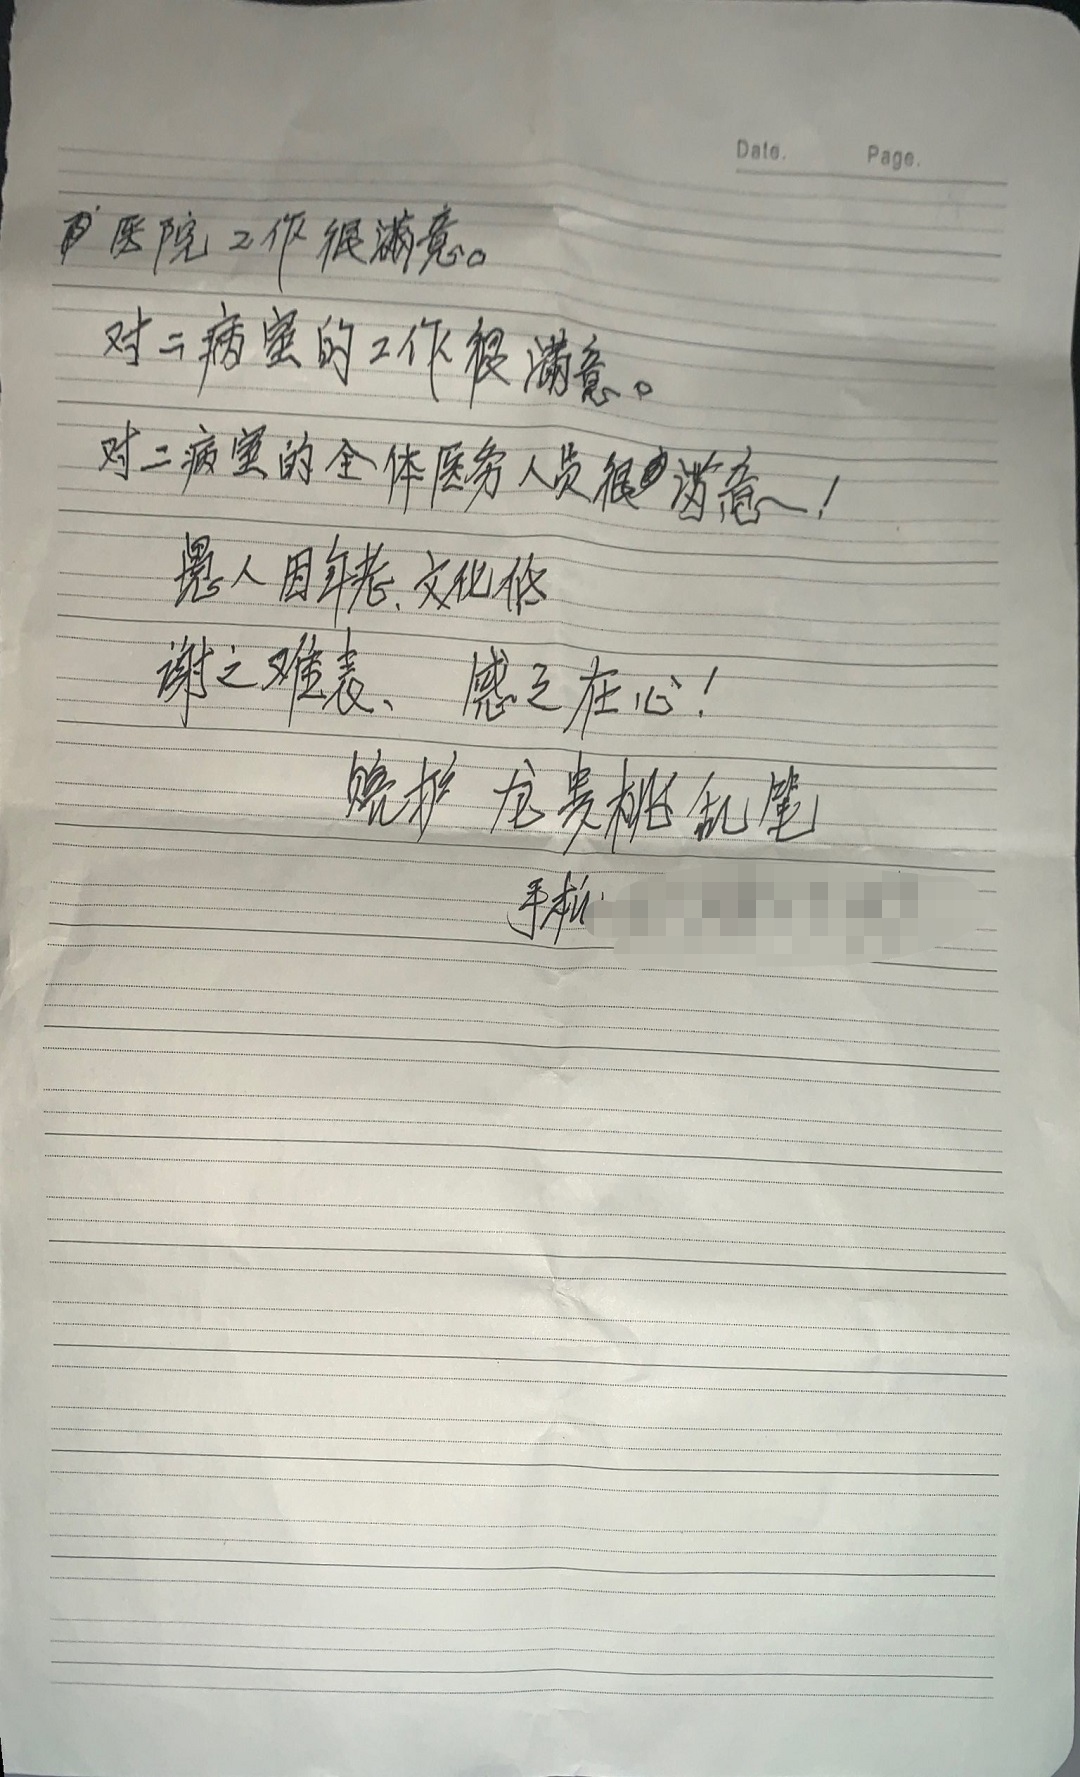 Date. Page.
医院工作很满意。
对二病室的工作很满意。
对二病室的全体医务人员很满意!
愚人因年老、文化低
谢之难表、感之在心!
龙贵桃乱笔
手机